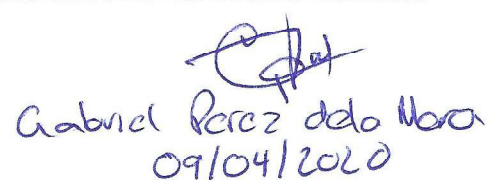 Gabriel Perez dela Mora
09/04/2020